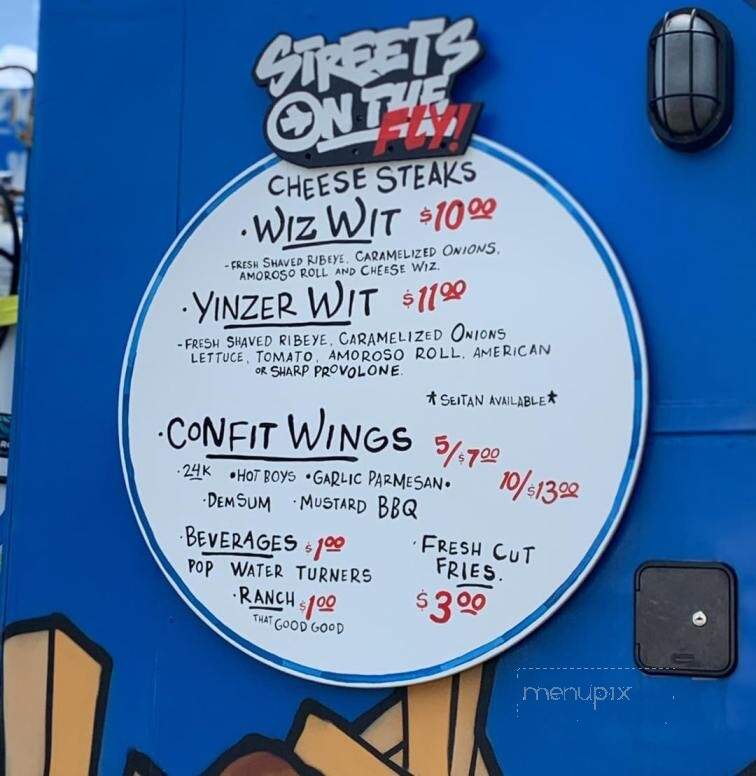 STREETS
ON THE
FLY!
CHEESE STEAKS
·WIZ WIT $10.00
-FRESH SHAVED RIBEYE, CARAMELIZED ONIONS,
AMOROSO ROLL AND CHEESE WIZ.
·YINZER WIT $11.00
-FRESH SHAVED RIBEYE, CARAMELIZED ONIONS
LETTUCE, TOMATO, AMOROSO ROLL, AMERICAN
OR SHARP PROVOLONE.
*SEITAN AVAILABLE*
·CONFIT WINGS 5/$7.00
10/$13.00
·24K •HOT BOYS •GARLIC PARMESAN•
·DEM SUM ·MUSTARD BBQ
·BEVERAGES $1.00
POP WATER TURNERS
·RANCH $1.00
THAT GOOD GOOD
·FRESH CUT
FRIES.
$3.00
menupix